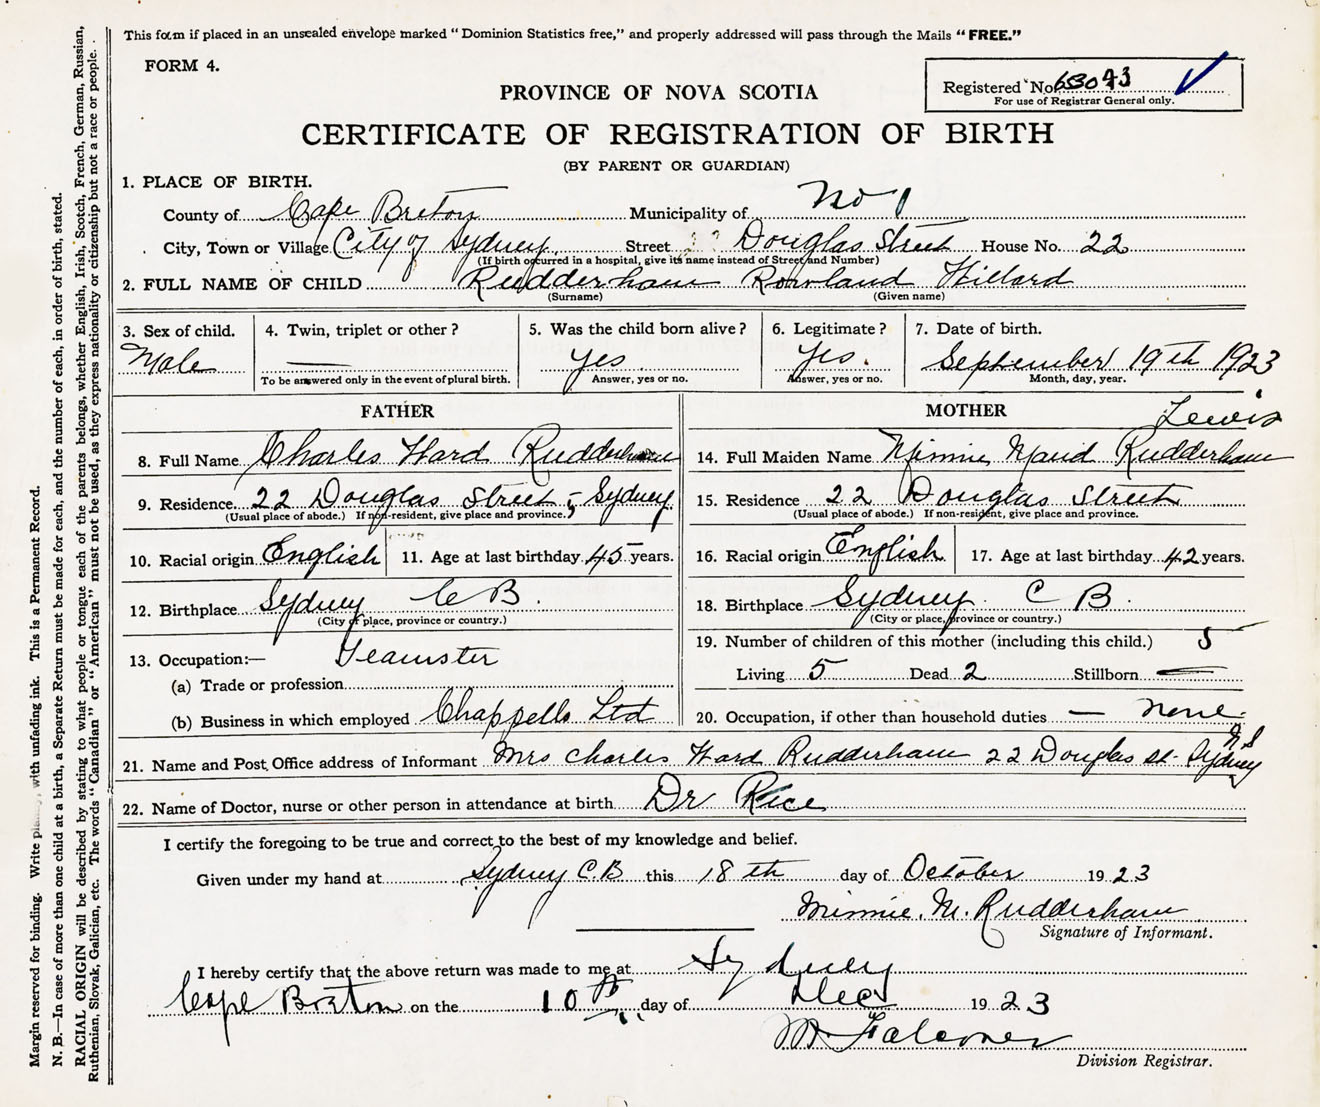 This form if placed in an unsealed envelope marked "Dominion Statistics free," and properly addressed will pass through the Mails "FREE."
FORM 4.
Registered No. 653093
For use of Registrar General only.
PROVINCE OF NOVA SCOTIA
CERTIFICATE OF REGISTRATION OF BIRTH
(BY PARENT OR GUARDIAN)
1. PLACE OF BIRTH.
County of Cape Breton Municipality of No 1
City, Town or Village City of Sydney Street Douglas Street House No. 22
(If birth occurred in a hospital, give its name instead of Street and Number)
2. FULL NAME OF CHILD Rudderham Rowland Hillard
(Surname) (Given name)
3. Sex of child. 4. Twin, triplet or other? 5. Was the child born alive? 6. Legitimate? 7. Date of birth.
Male — Yes Yes. September 19th 1923
To be answered only in the event of plural birth. Answer, yes or no. Answer, yes or no. Month, day, year.
FATHER
8. Full Name Charles Ward Rudderham
9. Residence 22 Douglas Street, Sydney
(Usual place of abode.) If non-resident, give place and province.
10. Racial origin English 11. Age at last birthday 45 years.
12. Birthplace Sydney C B.
(City or place, province or country.)
13. Occupation:— Teamster
(a) Trade or profession
(b) Business in which employed Chappells Ltd
MOTHER
Lewis
14. Full Maiden Name Minnie Maud Rudderham
15. Residence 22 Douglas Street
(Usual place of abode.) If non-resident, give place and province.
16. Racial origin English 17. Age at last birthday 42 years.
18. Birthplace Sydney. C B.
(City or place, province or country.)
19. Number of children of this mother (including this child.) 5
Living 5 Dead 2 Stillborn —
20. Occupation, if other than household duties — none.
21. Name and Post Office address of Informant Mrs Charles Ward Rudderham 22 Douglas st. Sydney N S
22. Name of Doctor, nurse or other person in attendance at birth Dr Rice
I certify the foregoing to be true and correct to the best of my knowledge and belief.
Given under my hand at Sydney C.B this 18 th day of October 1923
Minnie. M. Rudderham
Signature of Informant.
I hereby certify that the above return was made to me at Sydney
Cape Breton on the 10th day of Dec 1923
Falconer
Division Registrar.
Margin reserved for binding. Write with unfading ink. This is a Permanent Record.
N. B.—In case of more than one child at a birth, a Separate Return must be made for each, and the number of each, in order of birth, stated.
RACIAL ORIGIN will be described by stating to what people or tongue each of the parents belongs, whether English, Irish, Scotch, French, German, Russian,
Ruthenian, Slovak, Galician, etc. The words "Canadian" or "American" must not be used, as they express nationality or citizenship but not a race or people.